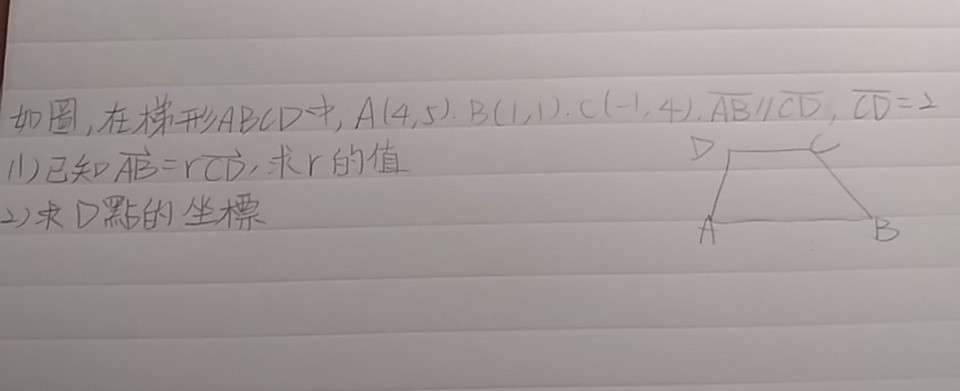 如圖,在梯形ABCD中, A(4,5). B(1,1). C(-1,4). $\overline{AB}$//$\overline{CD}$, $\overline{CD}$=2
(1)已知$\overrightarrow{AB}$=r$\overrightarrow{CD}$,求r的值
2)求D點的坐標
D C
A B